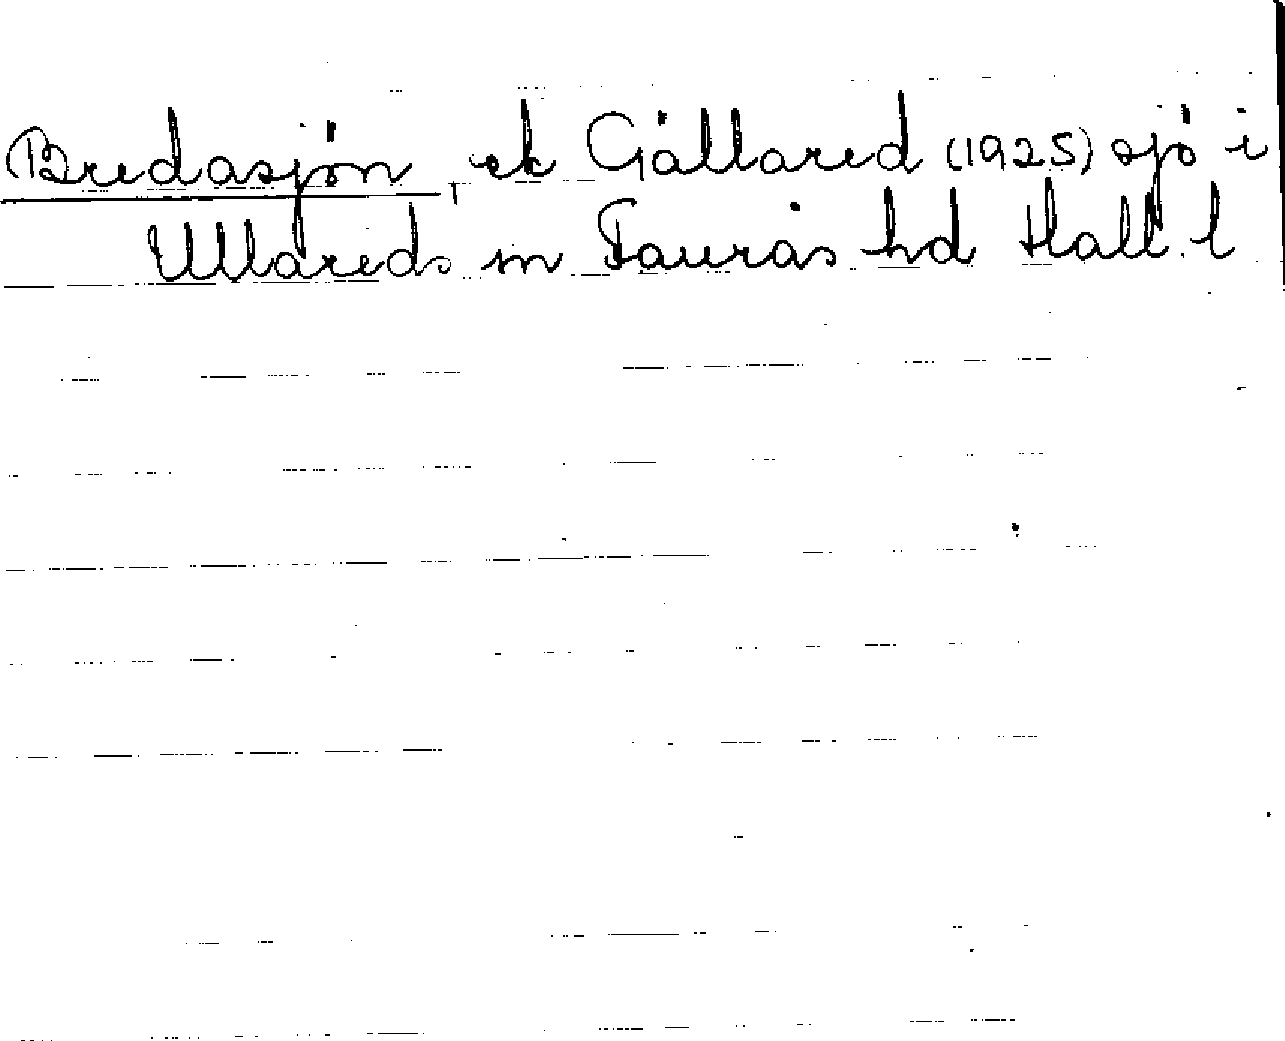 Bredasjön, ek Gällared (1925) sjö i
Ullareds sn Faurås hd Hall. l